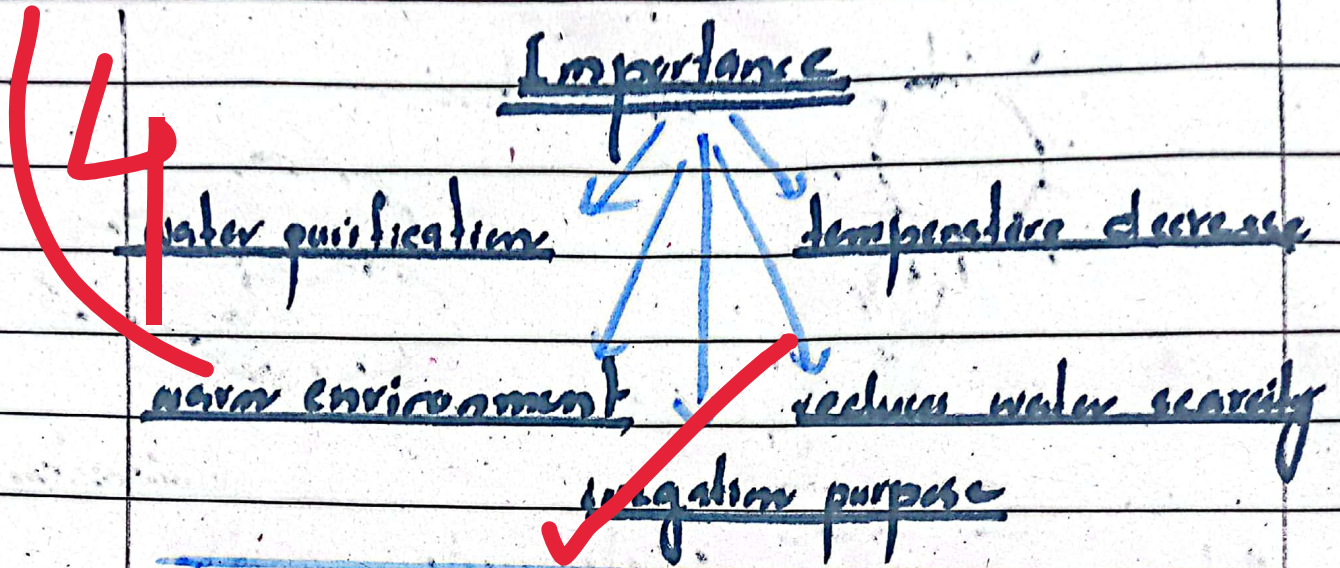 Importance
4
water purification temperature decrease
warm environment reduces water scarcity
irrigation purpose